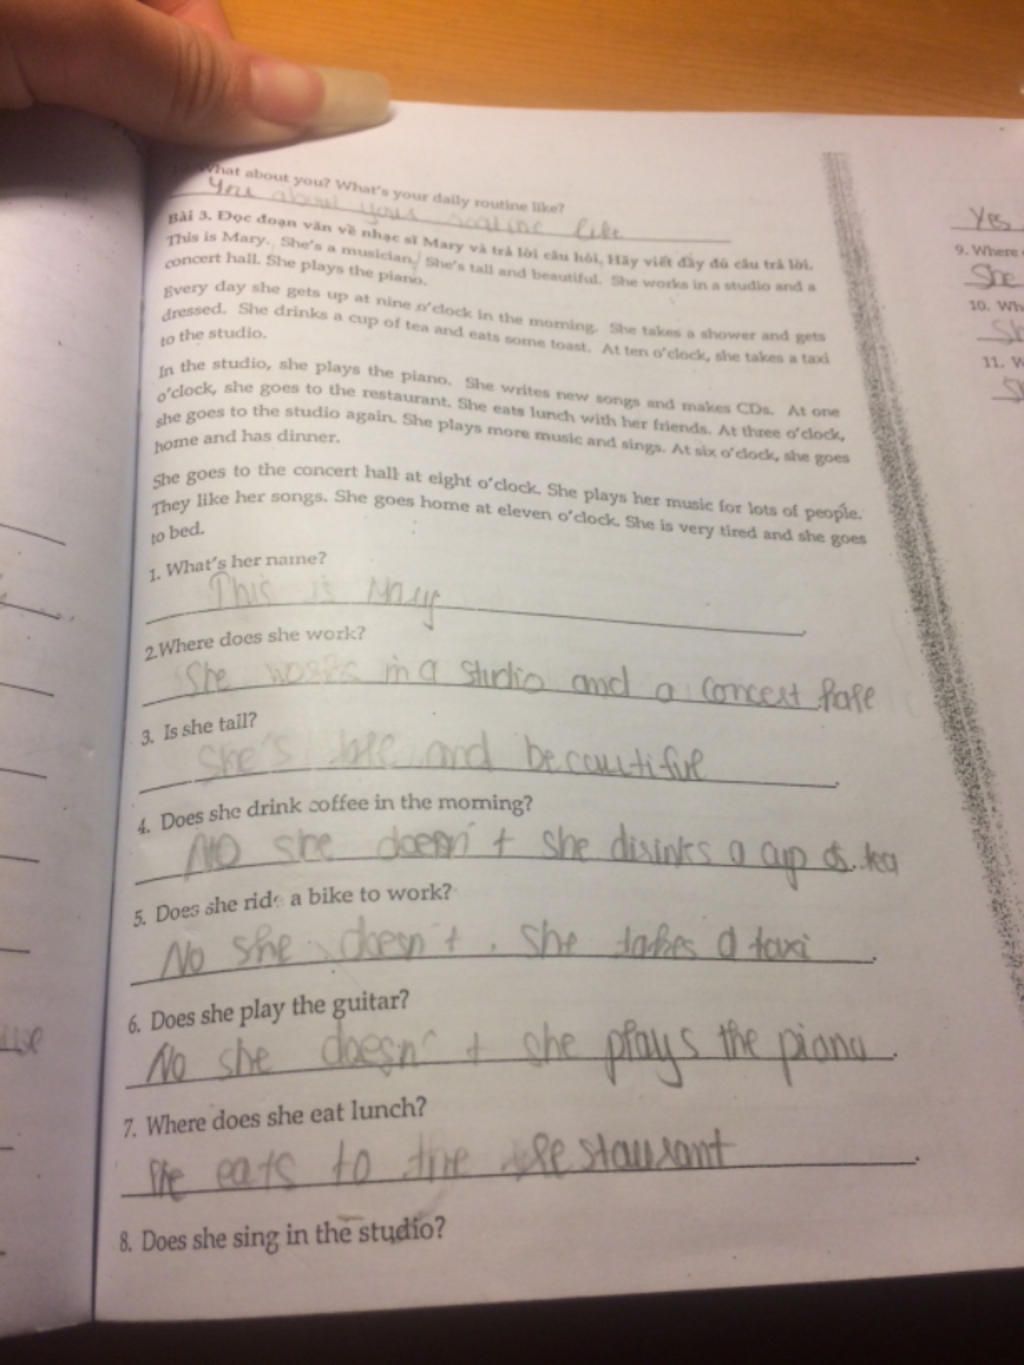 What about you? What's your daily routine like?
You about your routine like
Bài 3. Đọc đoạn văn về nhạc sĩ Mary và trả lời câu hỏi. Hãy viết đầy đủ câu trả lời.
This is Mary. She's a musician. She's tall and beautiful. She works in a studio and a
concert hall. She plays the piano.
Every day she gets up at nine o'clock in the morning. She takes a shower and gets
dressed. She drinks a cup of tea and eats some toast. At ten o'clock, she takes a taxi
to the studio.
In the studio, she plays the piano. She writes new songs and makes CDs. At one
o'clock, she goes to the restaurant. She eats lunch with her friends. At three o'clock,
she goes to the studio again. She plays more music and sings. At six o'clock, she goes
home and has dinner.
She goes to the concert hall at eight o'clock. She plays her music for lots of people.
They like her songs. She goes home at eleven o'clock. She is very tired and she goes
to bed.
1. What's her name?
This is Mary
2.Where does she work?
She works in a studio and a concert
3. Is she tall?
She's and beautiful
4. Does she drink coffee in the morning?
NO she doesn't she drinks a cup of tea
5. Does she ride a bike to work?
No she doesn't. She takes a taxi
6. Does she play the guitar?
No she doesn't she plays the piano
7. Where does she eat lunch?
She eats to the restaurant
8. Does she sing in the studio?
Yes
9. Where
She
10. Wh
Sh
11. W